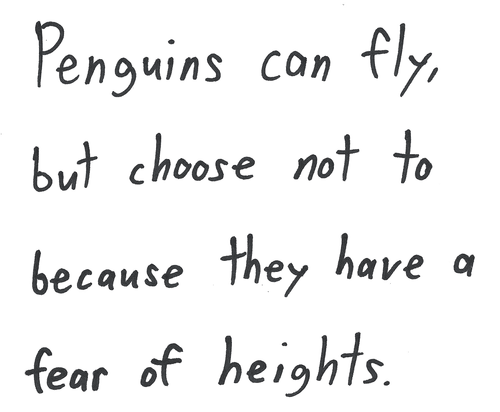 Penguins can fly,
but choose not to
because they have a
fear of heights.